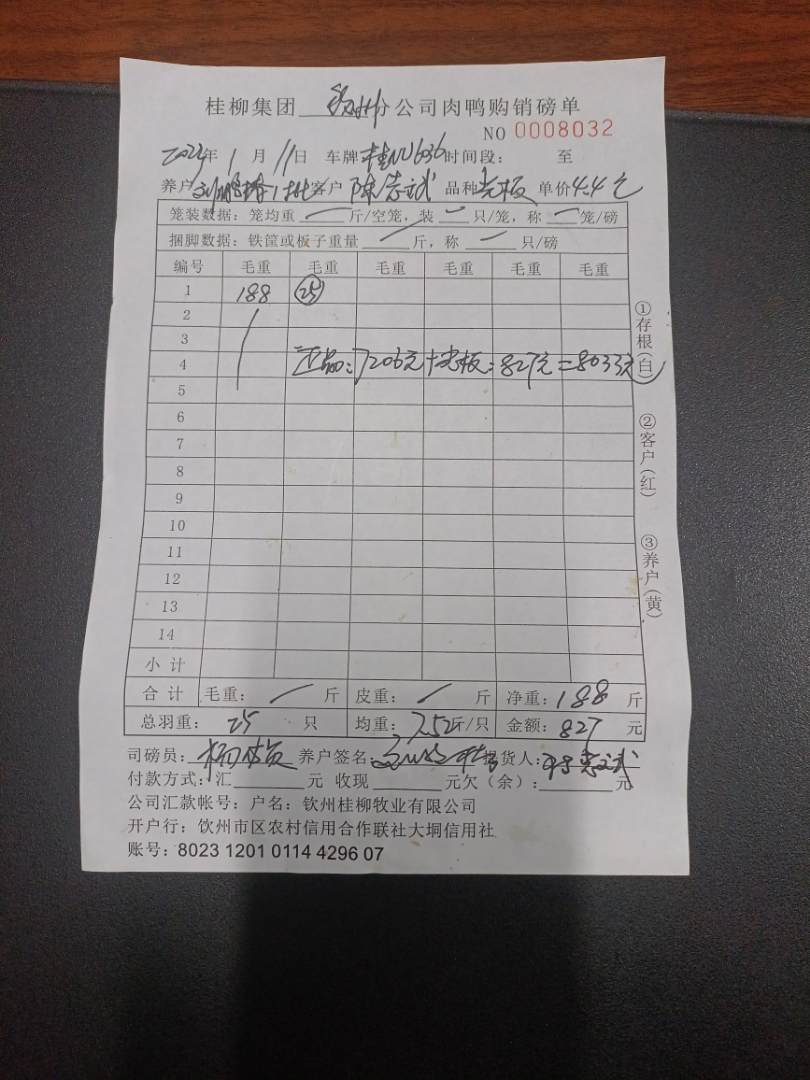 桂柳集团 钦州分公司肉鸭购销磅单
NO 0008032
年 1 月 11 日 车牌 桂N 636 时间段： 至
养户 客户 陈志武 品种 光板 单价 4.4元
笼装数据：笼均重 一 斤/空笼，装 一 只/笼，称 一 笼/磅
捆脚数据：铁筐或板子重量 一 斤，称 一 只/磅
编号 毛重 毛重 毛重 毛重 毛重 毛重
1 188 25
2
3
4 正品：7206元+光板：827元=8033元
5
6
7
8
9
10
11
12
13
14
小 计
合 计 毛重： / 斤 皮重： / 斤 净重：188 斤
总羽重： 25 只 均重：7.52斤/只 金额：827 元
司磅员： 养户签名： 提货人：陈志武
付款方式：汇 元 收现 元欠（余）： 元
公司汇款帐号：户名：钦州桂柳牧业有限公司
开户行：钦州市区农村信用合作联社大垌信用社
账号：8023 1201 0114 4296 07
①存根（白）
②客户（红）
③养户（黄）